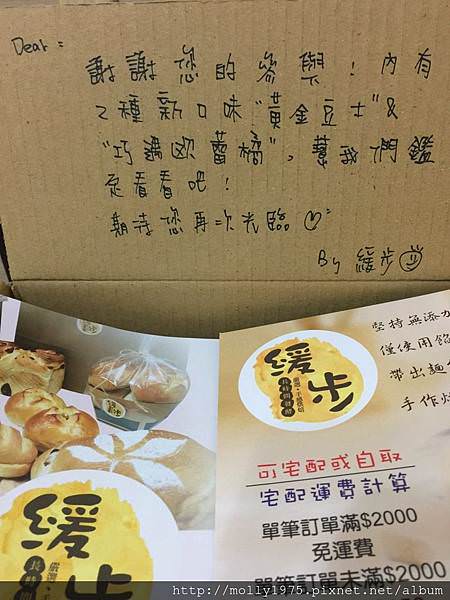 Dear:
謝謝您的參與！內有
2種新口味"黃金豆士"&
"巧遇歐蕾橘"，幫我們鑑
定看看吧！
期待您再次光臨♡
By 緩步
緩步
堅持無添加
僅使用餡
帶出麵
手作烘
可宅配或自取
宅配運費計算
單筆訂單滿$2000
免運費
單筆訂單未滿$2000
緩步
嚴選
長時
http://molly1975.pixnet.net/album